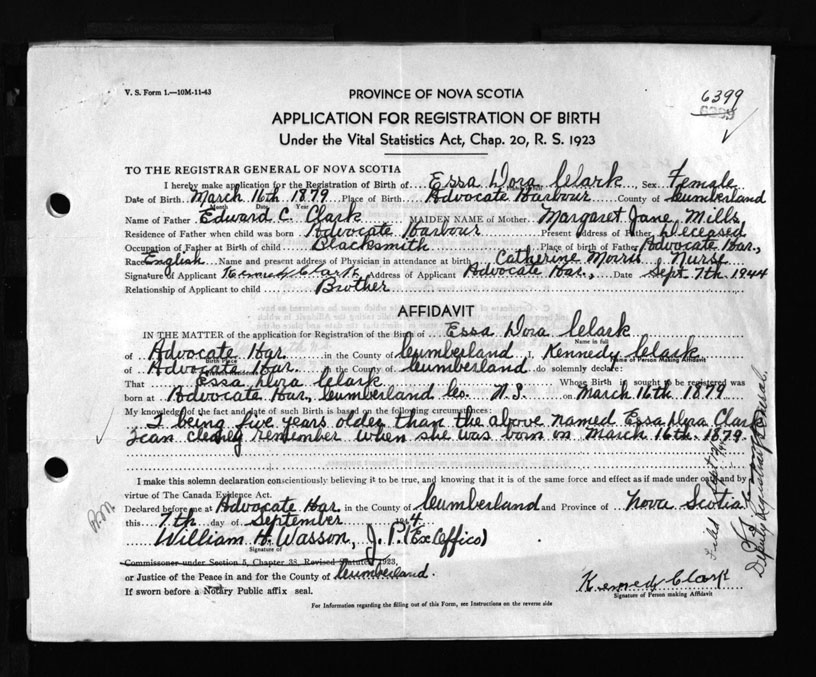 V. S. Form 1.—10M-11-43
PROVINCE OF NOVA SCOTIA
6399
6399
APPLICATION FOR REGISTRATION OF BIRTH
Under the Vital Statistics Act, Chap. 20, R. S. 1923
TO THE REGISTRAR GENERAL OF NOVA SCOTIA
I hereby make application for the Registration of Birth of Essa Dora Clark, Sex Female
Date of Birth March 16th 1879 Place of Birth Advocate Harbour County of Cumberland
Month Date Year
Name of Father Edward C. Clark MAIDEN NAME of Mother Margaret Jane Mills
Residence of Father when child was born Advocate Harbour Present Address of Father Deceased
Occupation of Father at Birth of child Blacksmith Place of birth of Father Advocate Har.,
Race English Name and present address of Physician in attendance at birth Catherine Morris Nurse
Signature of Applicant Kennedy Clark Address of Applicant Advocate Har., Date Sept. 7th 1944
Relationship of Applicant to child Brother
AFFIDAVIT
IN THE MATTER of the application for Registration of the Birth of Essa Dora Clark
Name in full
of Advocate Har. in the County of Cumberland I, Kennedy Clark
Birth Place Name of Person Making Affidavit
of Advocate Har. in the County of Cumberland do solemnly declare:
That Essa Dora Clark Whose Birth is sought to be registered was
born at Advocate Har, Cumberland Co. N.S. on March 16th 1879
My knowledge of the fact and date of such Birth is based on the following circumstances:
I being five years older than the above named Essa Dora Clark
I can clearly remember when she was born on March 16th. 1879.
I make this solemn declaration conscientiously believing it to be true, and knowing that it is of the same force and effect as if made under oath and by
virtue of The Canada Evidence Act.
Declared before me at Advocate Har in the County of Cumberland and Province of Nova Scotia
this 7th day of September 1944
William H. Wasson, J.P. (Ex Offico)
Signature of
Commissioner under Section 5, Chapter 38, Revised Statutes 1923,
or Justice of the Peace in and for the County of Cumberland.
If sworn before a Notary Public affix seal.
Kennedy Clark
Signature of Person making Affidavit
For Information regarding the filling out of this Form, see Instructions on the reverse side
Filed Sept
Deputy Registrar General